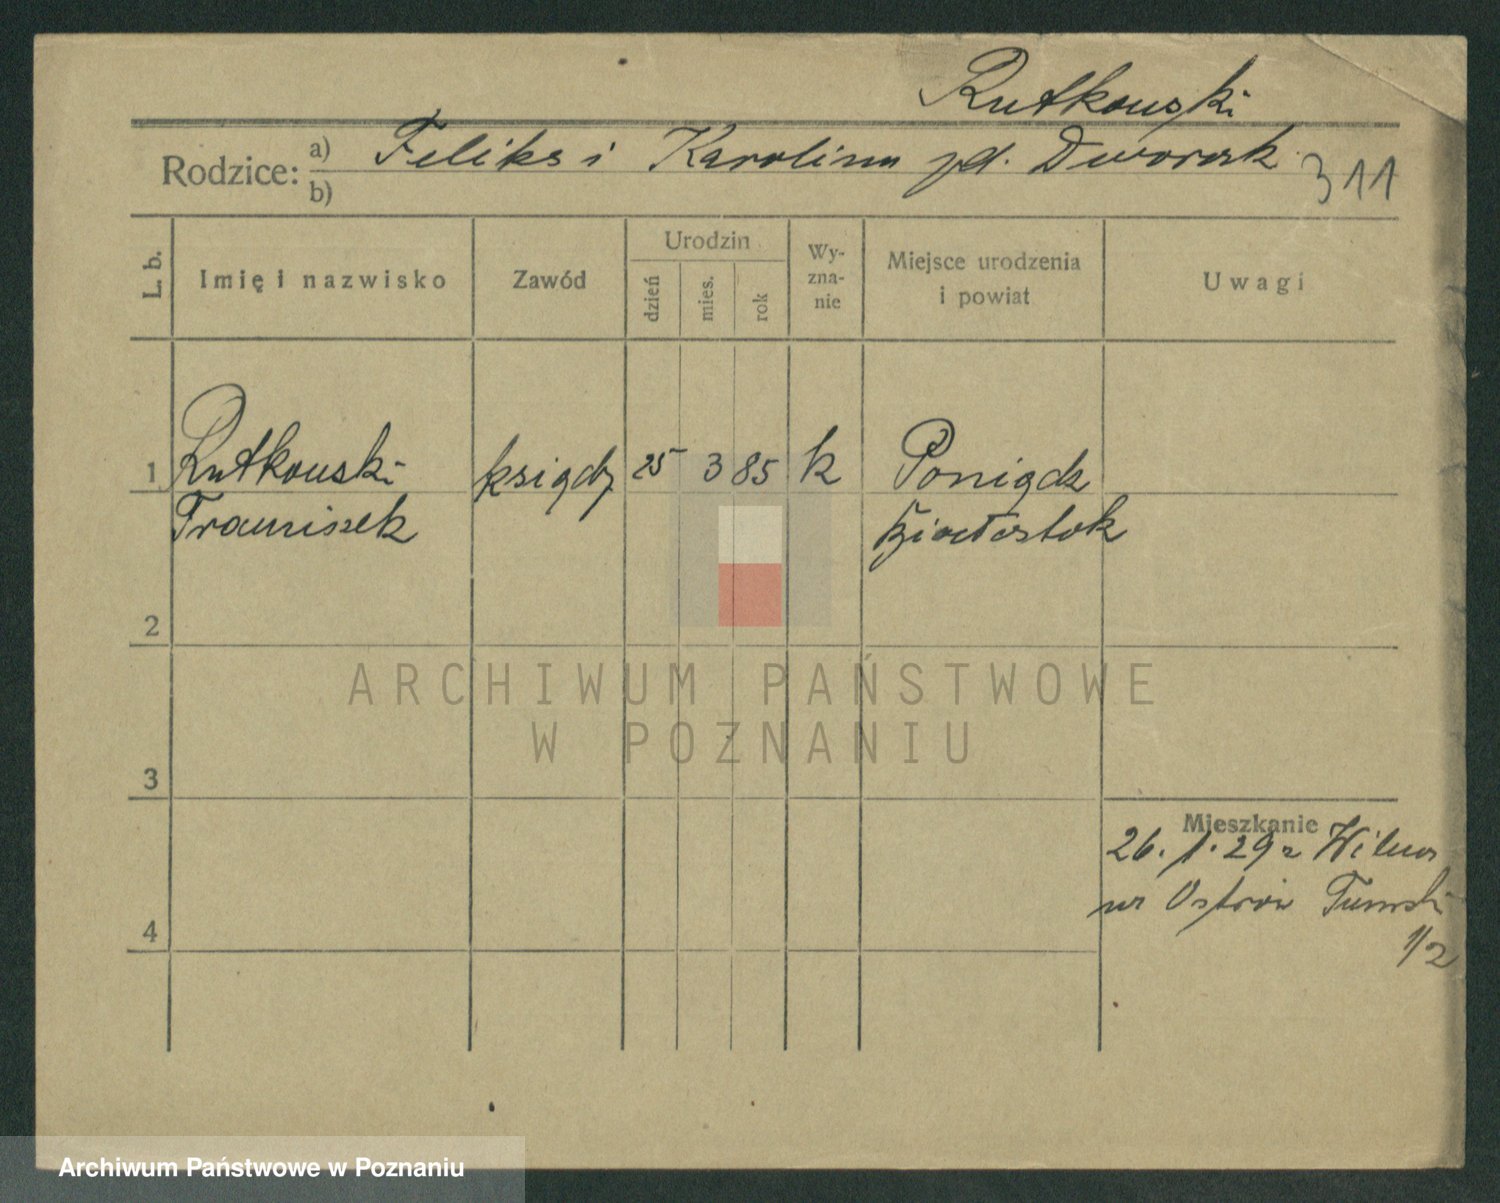 Rutkowski
Rodzice: a) Feliks i Karolina zd. Dworak
b)
311
L. b.
Imię i nazwisko
Zawód
Urodzin
dzień
mies.
rok
Wy-
zna-
nie
Miejsce urodzenia
i powiat
Uwagi
1 Rutkowski ksiądz 25 3 85 k Poniądz
Franciszek Białostok
2
3
4
Mieszkanie
26. 1. 29 z Wilna
Ostrów Tumski
1/2
ARCHIWUM PAŃSTWOWE
W POZNANIU
Archiwum Państwowe w Poznaniu